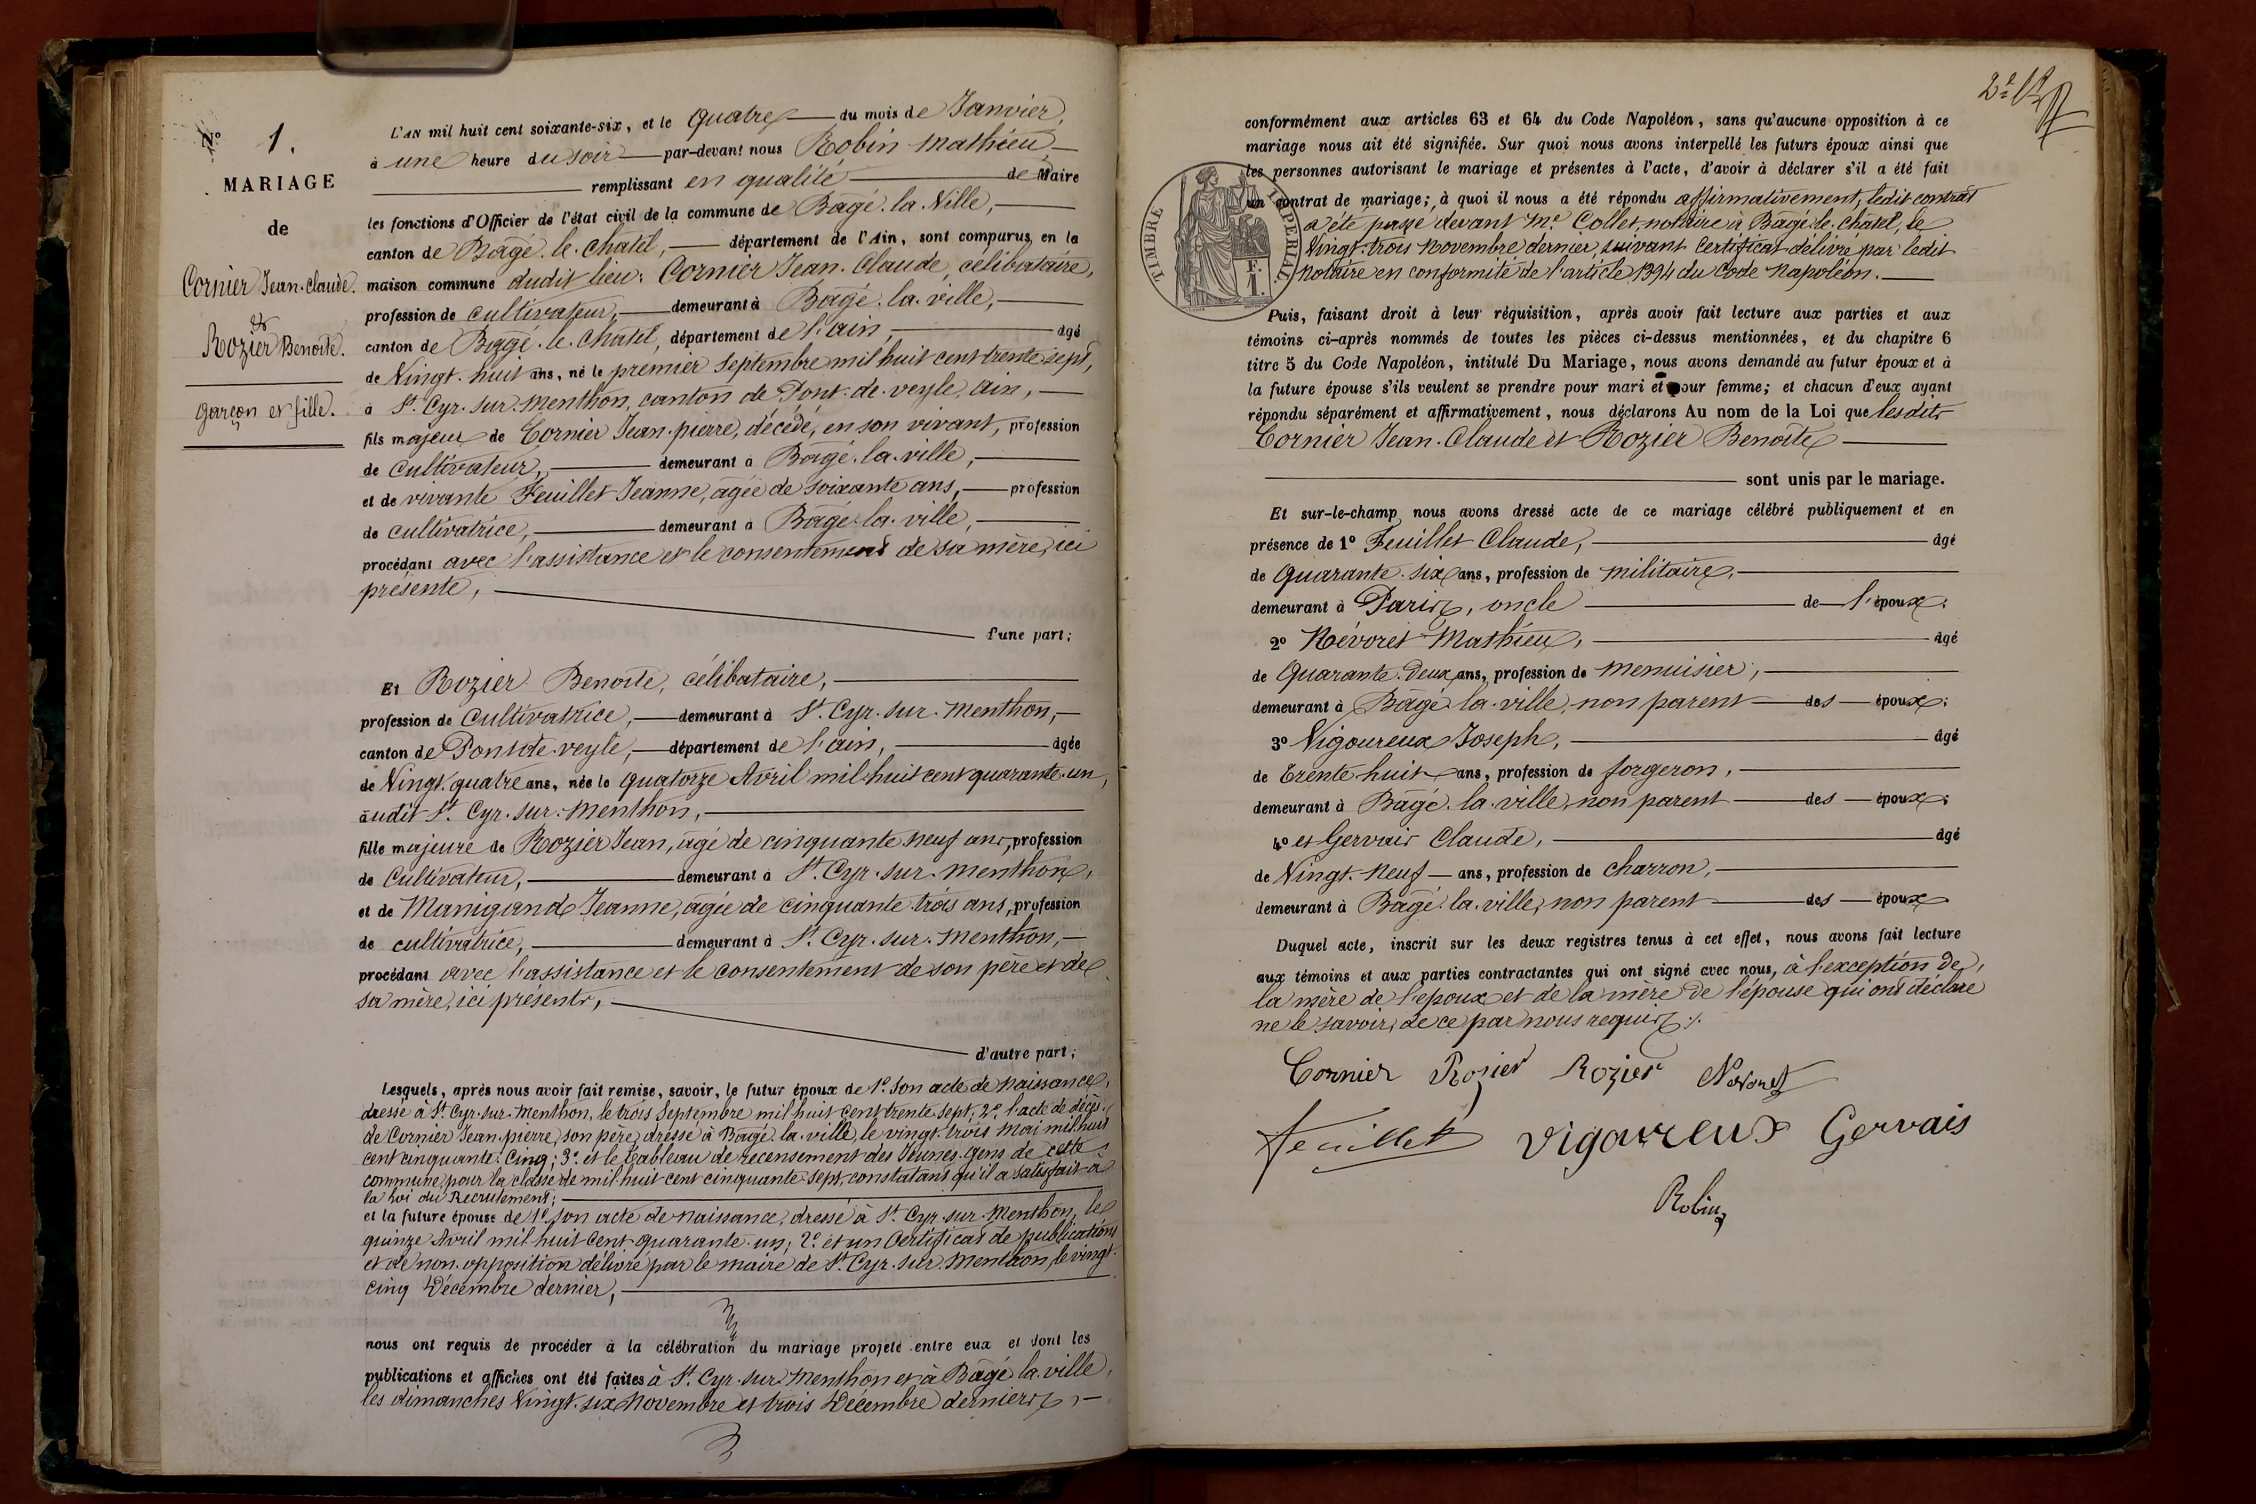 N° 1.
MARIAGE
de
Cornier Jean-Claude.
et
Rozier Benoite.
garçon et fille.
L'AN mil huit cent soixante-six, et le quatre du mois de Janvier,
à une heure du soir par-devant nous Robin Mathieu
remplissant en qualité de Maire
les fonctions d'Officier de l'état civil de la commune de Bâgé-la-Ville,
canton de Bâgé-le-Châtel, département de l'Ain, sont comparus, en la
maison commune dudit lieu: Cornier Jean-Claude, célibataire,
profession de cultivateur, demeurant à Bâgé-la-ville,
canton de Bâgé-le-Châtel, département de l'ain, âgé
de Vingt-huit ans, né le premier Septembre mil huit cent trente sept,
à St. Cyr-sur-Menthon, canton de Pont-de-veyle, ain,
fils majeur de Cornier Jean-pierre, décédé, en son vivant, profession
de cultivateur, demeurant à Bâgé-la-ville,
et de vivante Feuillet Jeanne, âgée de soixante ans, profession
de cultivatrice, demeurant à Bâgé-la-ville,
procédant avec l'assistance et le consentement de sa mère, ici
présente,
d'une part;
Et Rozier Benoite, célibataire,
profession de Cultivatrice, demeurant à St. Cyr-sur-Menthon,
canton de Pont-de-veyle, département de l'ain, âgée
de Vingt-quatre ans, née le quatorze Avril mil huit cent quarante-un,
audit St. Cyr-sur-Menthon,
fille majeure de Rozier Jean, âgé de cinquante neuf ans, profession
de Cultivateur, demeurant à St. Cyr-sur-Menthon,
et de Manigand Jeanne, âgée de cinquante-trois ans, profession
de cultivatrice, demeurant à St. Cyr-sur-Menthon,
procédant avec l'assistance et le consentement de son père et de
sa mère, ici présents,
d'autre part;
Lesquels, après nous avoir fait remise, savoir, le futur époux de 1°. Son acte de naissance,
dressé à St. Cyr-sur-Menthon, le trois Septembre mil huit cent trente-sept; 2°. l'acte de décès
de Cornier Jean-pierre, son père, dressé à Bâgé-la-ville, le vingt-trois Mai mil huit
cent cinquante-Cinq; 3°. et le Tableau de recensement des Jeunes-gens de cette
commune, pour la classe de mil-huit cent cinquante-sept, constatant qu'il a satisfait à
la Loi du Recrutement;
et la future épouse de 1°. Son acte de naissance, dressé à St. Cyr-sur-Menthon, le
quinze Avril mil huit cent quarante-un; 2°. et un Certificat de publications
et de non-opposition délivré par le maire de St. Cyr-sur-Menthon, le vingt-
cinq Décembre dernier,
nous ont requis de procéder à la célébration du mariage projeté entre eux et dont les
publications et affiches ont été faites à St. Cyr-sur-Menthon et à Bâgé-la-ville,
les dimanches Vingt-six Novembre et trois Décembre derniers,
conformément aux articles 63 et 64 du Code Napoléon, sans qu'aucune opposition à ce
mariage nous ait été signifiée. Sur quoi nous avons interpellé les futurs époux ainsi que
les personnes autorisant le mariage et présentes à l'acte, d'avoir à déclarer s'il a été fait
un contrat de mariage; à quoi il nous a été répondu affirmativement, ledit contrat
a été passé devant Me. Collet, notaire à Bâgé-le-châtel, le
Vingt-trois Novembre dernier, suivant Certificat délivré par ledit
Notaire en conformité de l'article 1394 du Code Napoléon.
TIMBRE IMPERIAL
F.
1.
Puis, faisant droit à leur réquisition, après avoir fait lecture aux parties et aux
témoins ci-après nommés de toutes les pièces ci-dessus mentionnées, et du chapitre 6
titre 5 du Code Napoléon, intitulé Du Mariage, nous avons demandé au futur époux et à
la future épouse s'ils veulent se prendre pour mari et pour femme; et chacun d'eux ayant
répondu séparément et affirmativement, nous déclarons Au nom de la Loi que lesdits
Cornier Jean-Claude et Rozier Benoite
sont unis par le mariage.
Et sur-le-champ nous avons dressé acte de ce mariage célébré publiquement et en
présence de 1° Feuillet Claude, âgé
de Quarante-six ans, profession de militaire,
demeurant à Paris, oncle de l'époux;
2° Névoret Mathieu, âgé
de Quarante-Deux ans, profession de Menuisier,
demeurant à Bâgé-la-ville, non parent des époux;
3° Vigoureux Joseph, âgé
de Trente-huit ans, profession de forgeron,
demeurant à Bâgé-la-ville, non parent des époux;
4° et Gervais Claude, âgé
de Vingt-Neuf ans, profession de charron,
demeurant à Bâgé-la-ville, non parent des époux
Duquel acte, inscrit sur les deux registres tenus à cet effet, nous avons fait lecture
aux témoins et aux parties contractantes qui ont signé avec nous, à l'exception de
la mère de l'époux et de la mère de l'épouse qui ont déclaré
ne le savoir, de ce par nous requis./.
Cornier Rozier Rozier Nevoret
Feuillet Vigoureux Gervais
Robin